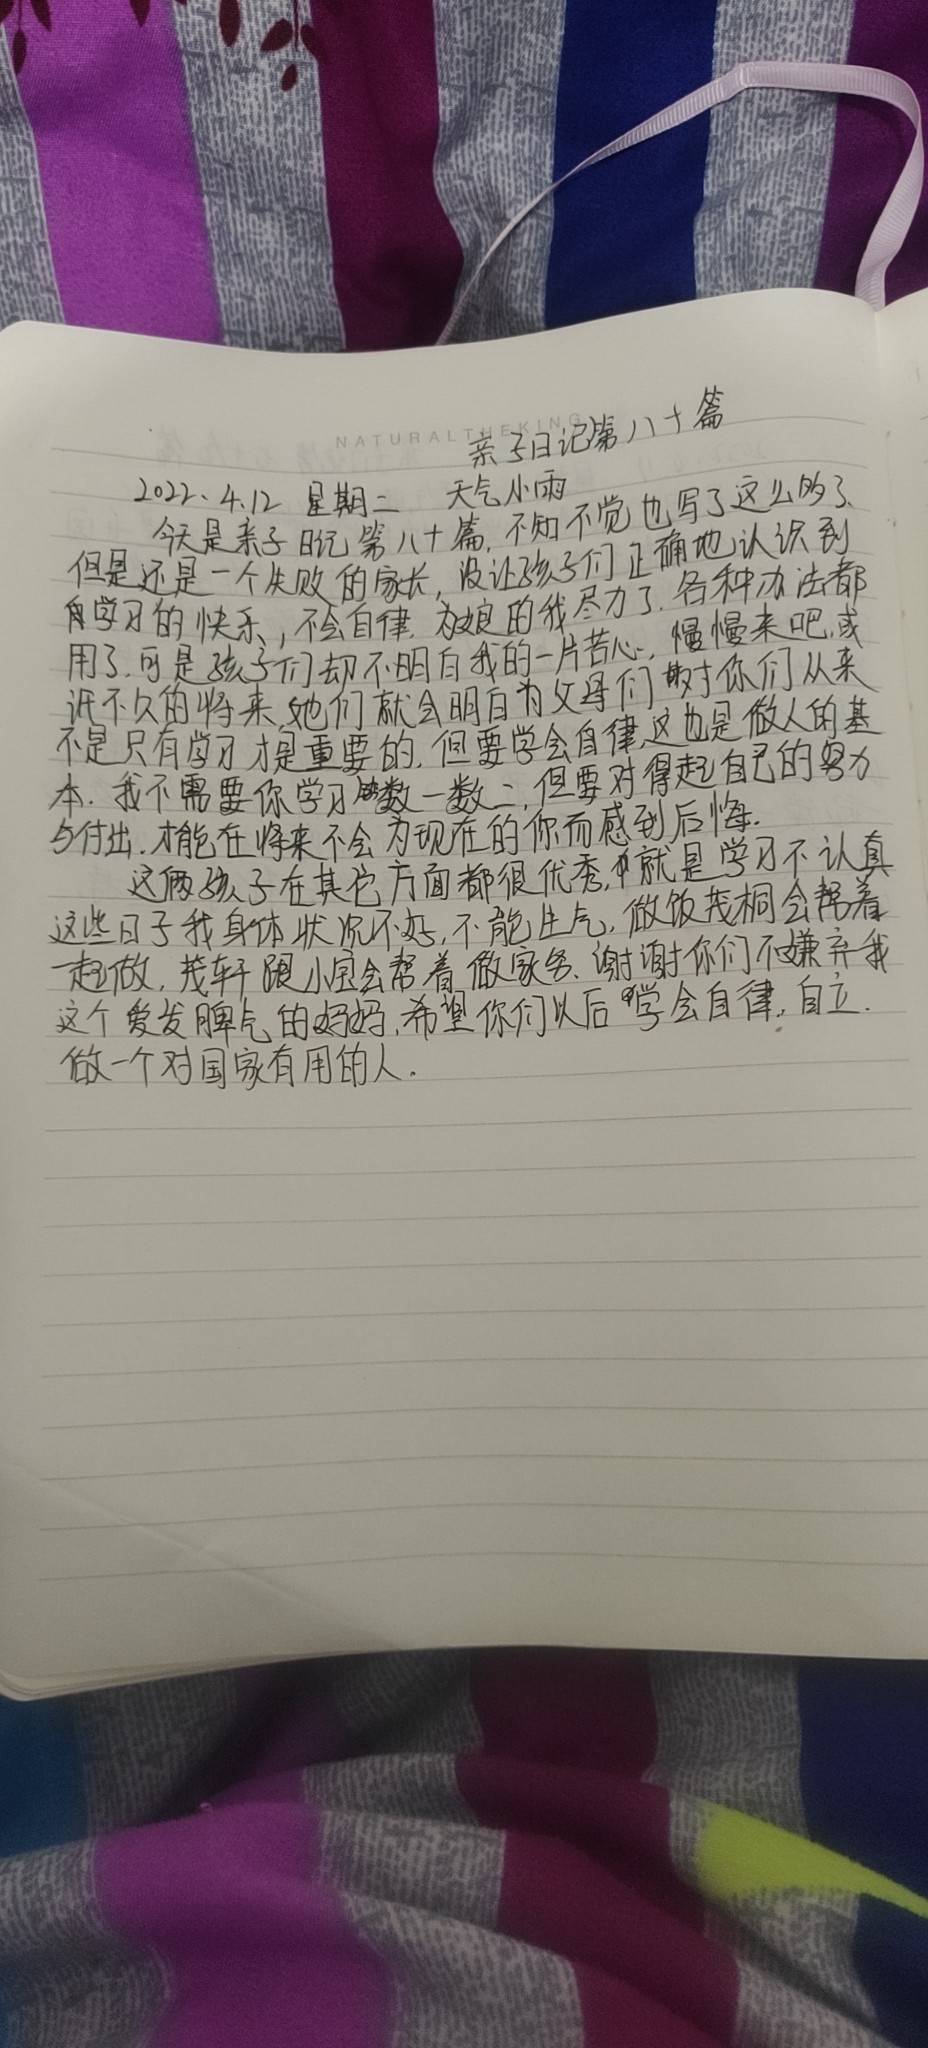 NATURALTHEKING
亲子日记第八十篇
2022.4.12 星期二 天气小雨
今天是亲子日记第八十篇，不知不觉也写了这么多了、
但是还是一个失败的家长，没让孩子们正确地认识到
学习的快乐，不会自律，为娘的我尽力了，各种办法都
用了，可是孩子们却不明白我的一片苦心，慢慢来吧，或
许不久的将来，她们就会明白为父母们对你们从来
不是只有学习才是重要的，但要学会自律，这也是做人的基
本．我不需要你学习数一数二，但要对得起自己的努力
与付出，才能在将来不会为现在的你而感到后悔．
这俩孩子在其它方面都很优秀，就是学习不认真
这些日子我身体状况不好，不能生气，做饭茂桐会帮着
一起做，茂轩跟小宝会帮着做家务．谢谢你们不嫌弃我
这个爱发脾气的妈妈，希望你们以后学会自律，自立．
做一个对国家有用的人．